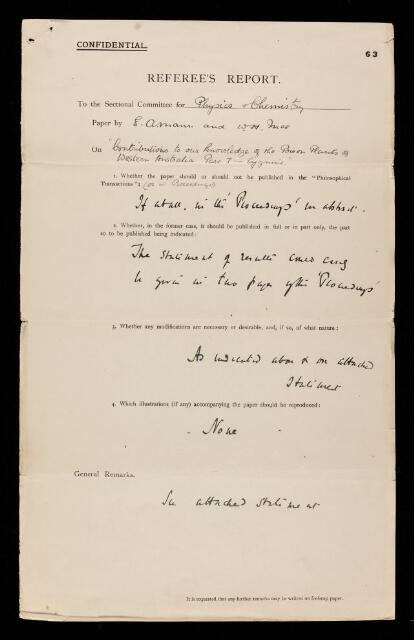 CONFIDENTIAL.
63
REFEREE'S REPORT.
To the Sectional Committee for Physics & Chemistry
Paper by E. A. Mann and W. H. Ince
On "Contributions to our knowledge of the Poison Plants of
Western Australia Part I — Cygnine"
1. Whether the paper should or should not be published in the "Philosophical
Transactions"? (or in Proceedings)
If at all, in the 'Proceedings' in abstract.
2. Whether, in the former case, it should be published in full or in part only, the part
so to be published being indicated:
The statement of results could easily
be given in two pages of the 'Proceedings'
3. Whether any modifications are necessary or desirable, and, if so, of what nature:
As indicated above & on attached
Statement
4. Which illustrations (if any) accompanying the paper should be reproduced:
- None -
General Remarks.
See attached statement
It is requested that any further remarks may be written on foolscap paper.